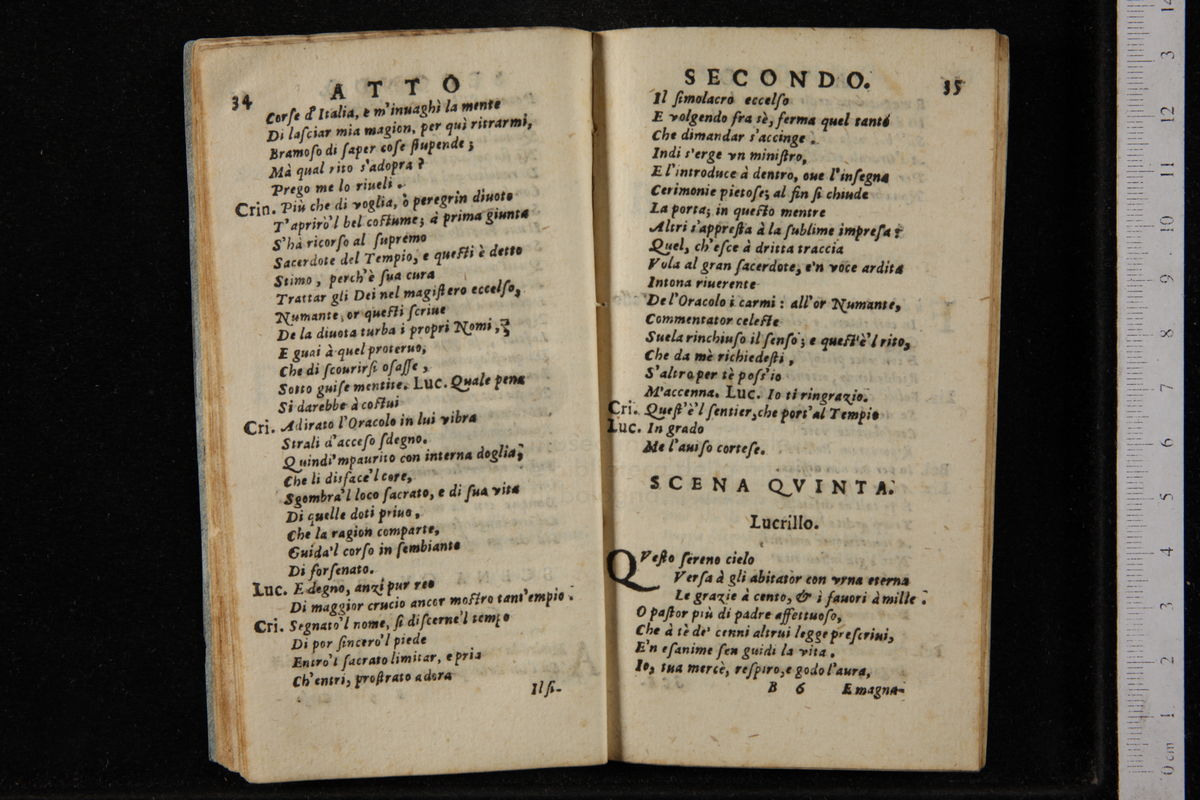 34
ATTO
Corse d'Italia, e m'inuaghì la mente
Di lasciar mia magion, per quì ritrarmi,
Bramoso di saper cose stupende;
Mà qual rito s'adopra?
Prego me lo riueli.
Crin. Più che di voglia, ò peregrin diuoto
T'aprirò'l bel costume; à prima giunta
S'hà ricorso al supremo
Sacerdote del Tempio, e questi è detto
Stimo, perch'è sua cura
Trattar gli Dei nel magistero eccelso,
Numante, or questi scriue
De la diuota turba i propri Nomi,
E guai à quel proteruo,
Che di scourirsi osasse,
Sotto guise mentite. Luc. Quale pena
Si darebbe à costui
Cri. Adirato l'Oracolo in lui vibra
Strali d'acceso sdegno.
Quindi'mpaurito con interna doglia,
Che li disface'l core,
Sgombra'l loco sacrato, e di sua vita
Di quelle doti priuo,
Che la ragion comparte,
Guida'l corso in sembiante
Di forsenato.
Luc. E degno, anzi pur reo
Di maggior crucio ancor mostro tant'empio.
Cri. Segnato'l nome, si discerne'l tempo
Di por sincero'l piede
Entro'l sacrato limitar, e pria
Ch'entri, prostrato adora
Il si-
SECONDO.
35
Il simolacro eccelso
E volgendo fra sè, ferma quel tanto
Che dimandar s'accinge.
Indi s'erge vn ministro,
E l'introduce à dentro, oue l'insegna
Cerimonie pietose; al fin si chiude
La porta; in questo mentre
Altri s'appresta à la sublime impresa:
Quel, ch'esce à dritta traccia
Vola al gran sacerdote, e'n voce ardita
Intona riuerente
De l'Oracolo i carmi: all'or Numante,
Commentator celeste
Suela rinchiuso il senso; e quest'è'l rito,
Che da mè richiedesti,
S'altro per tè poss'io
M'accenna. Luc. Io ti ringrazio.
Cri. Quest'è'l sentier, che port'al Tempio
Luc. In grado
Me l'auiso cortese.
SCENA QVINTA.
Lucrillo.
QVesto sereno cielo
Versa à gli abitator con vrna eterna
Le grazie à cento, & i fauori à mille.
O pastor più di padre affettuoso,
Che à tè de' cenni altrui legge prescriui,
E'n esanime sen guidi la vita.
Io, tua mercè, respiro, e godo l'aura,
B 6
E magna-